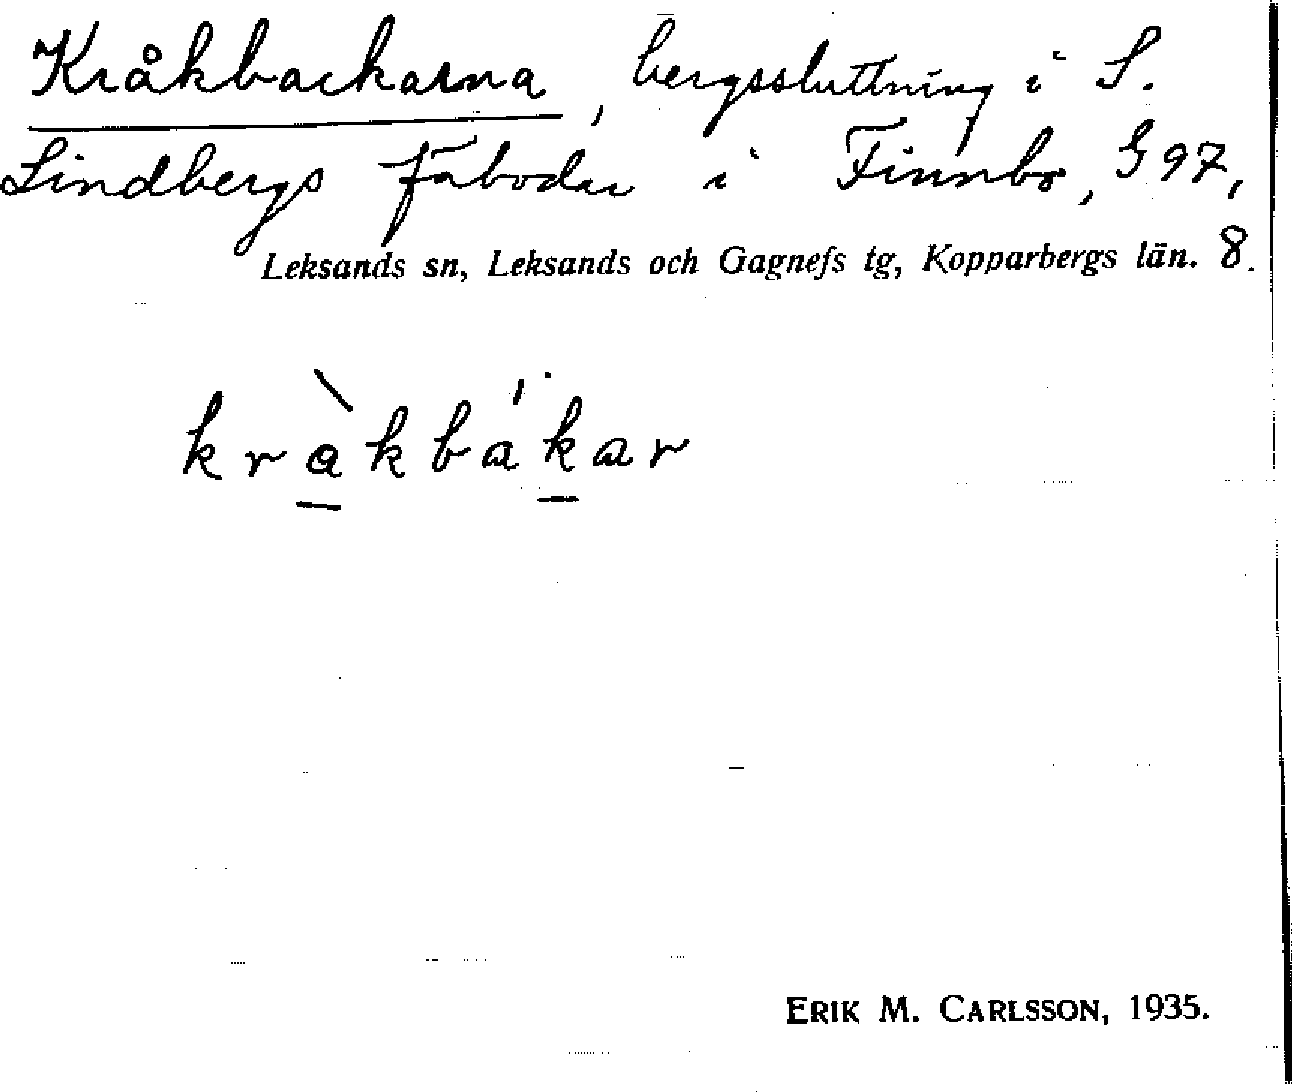 Kråkbackarna, bergssluttning i S.
Lindbergs fäbodar i Finnbo, G 97,
Leksands sn, Leksands och Gagnefs tg, Kopparbergs län. 8.
kråkbakar
ERIK M. CARLSSON, 1935.